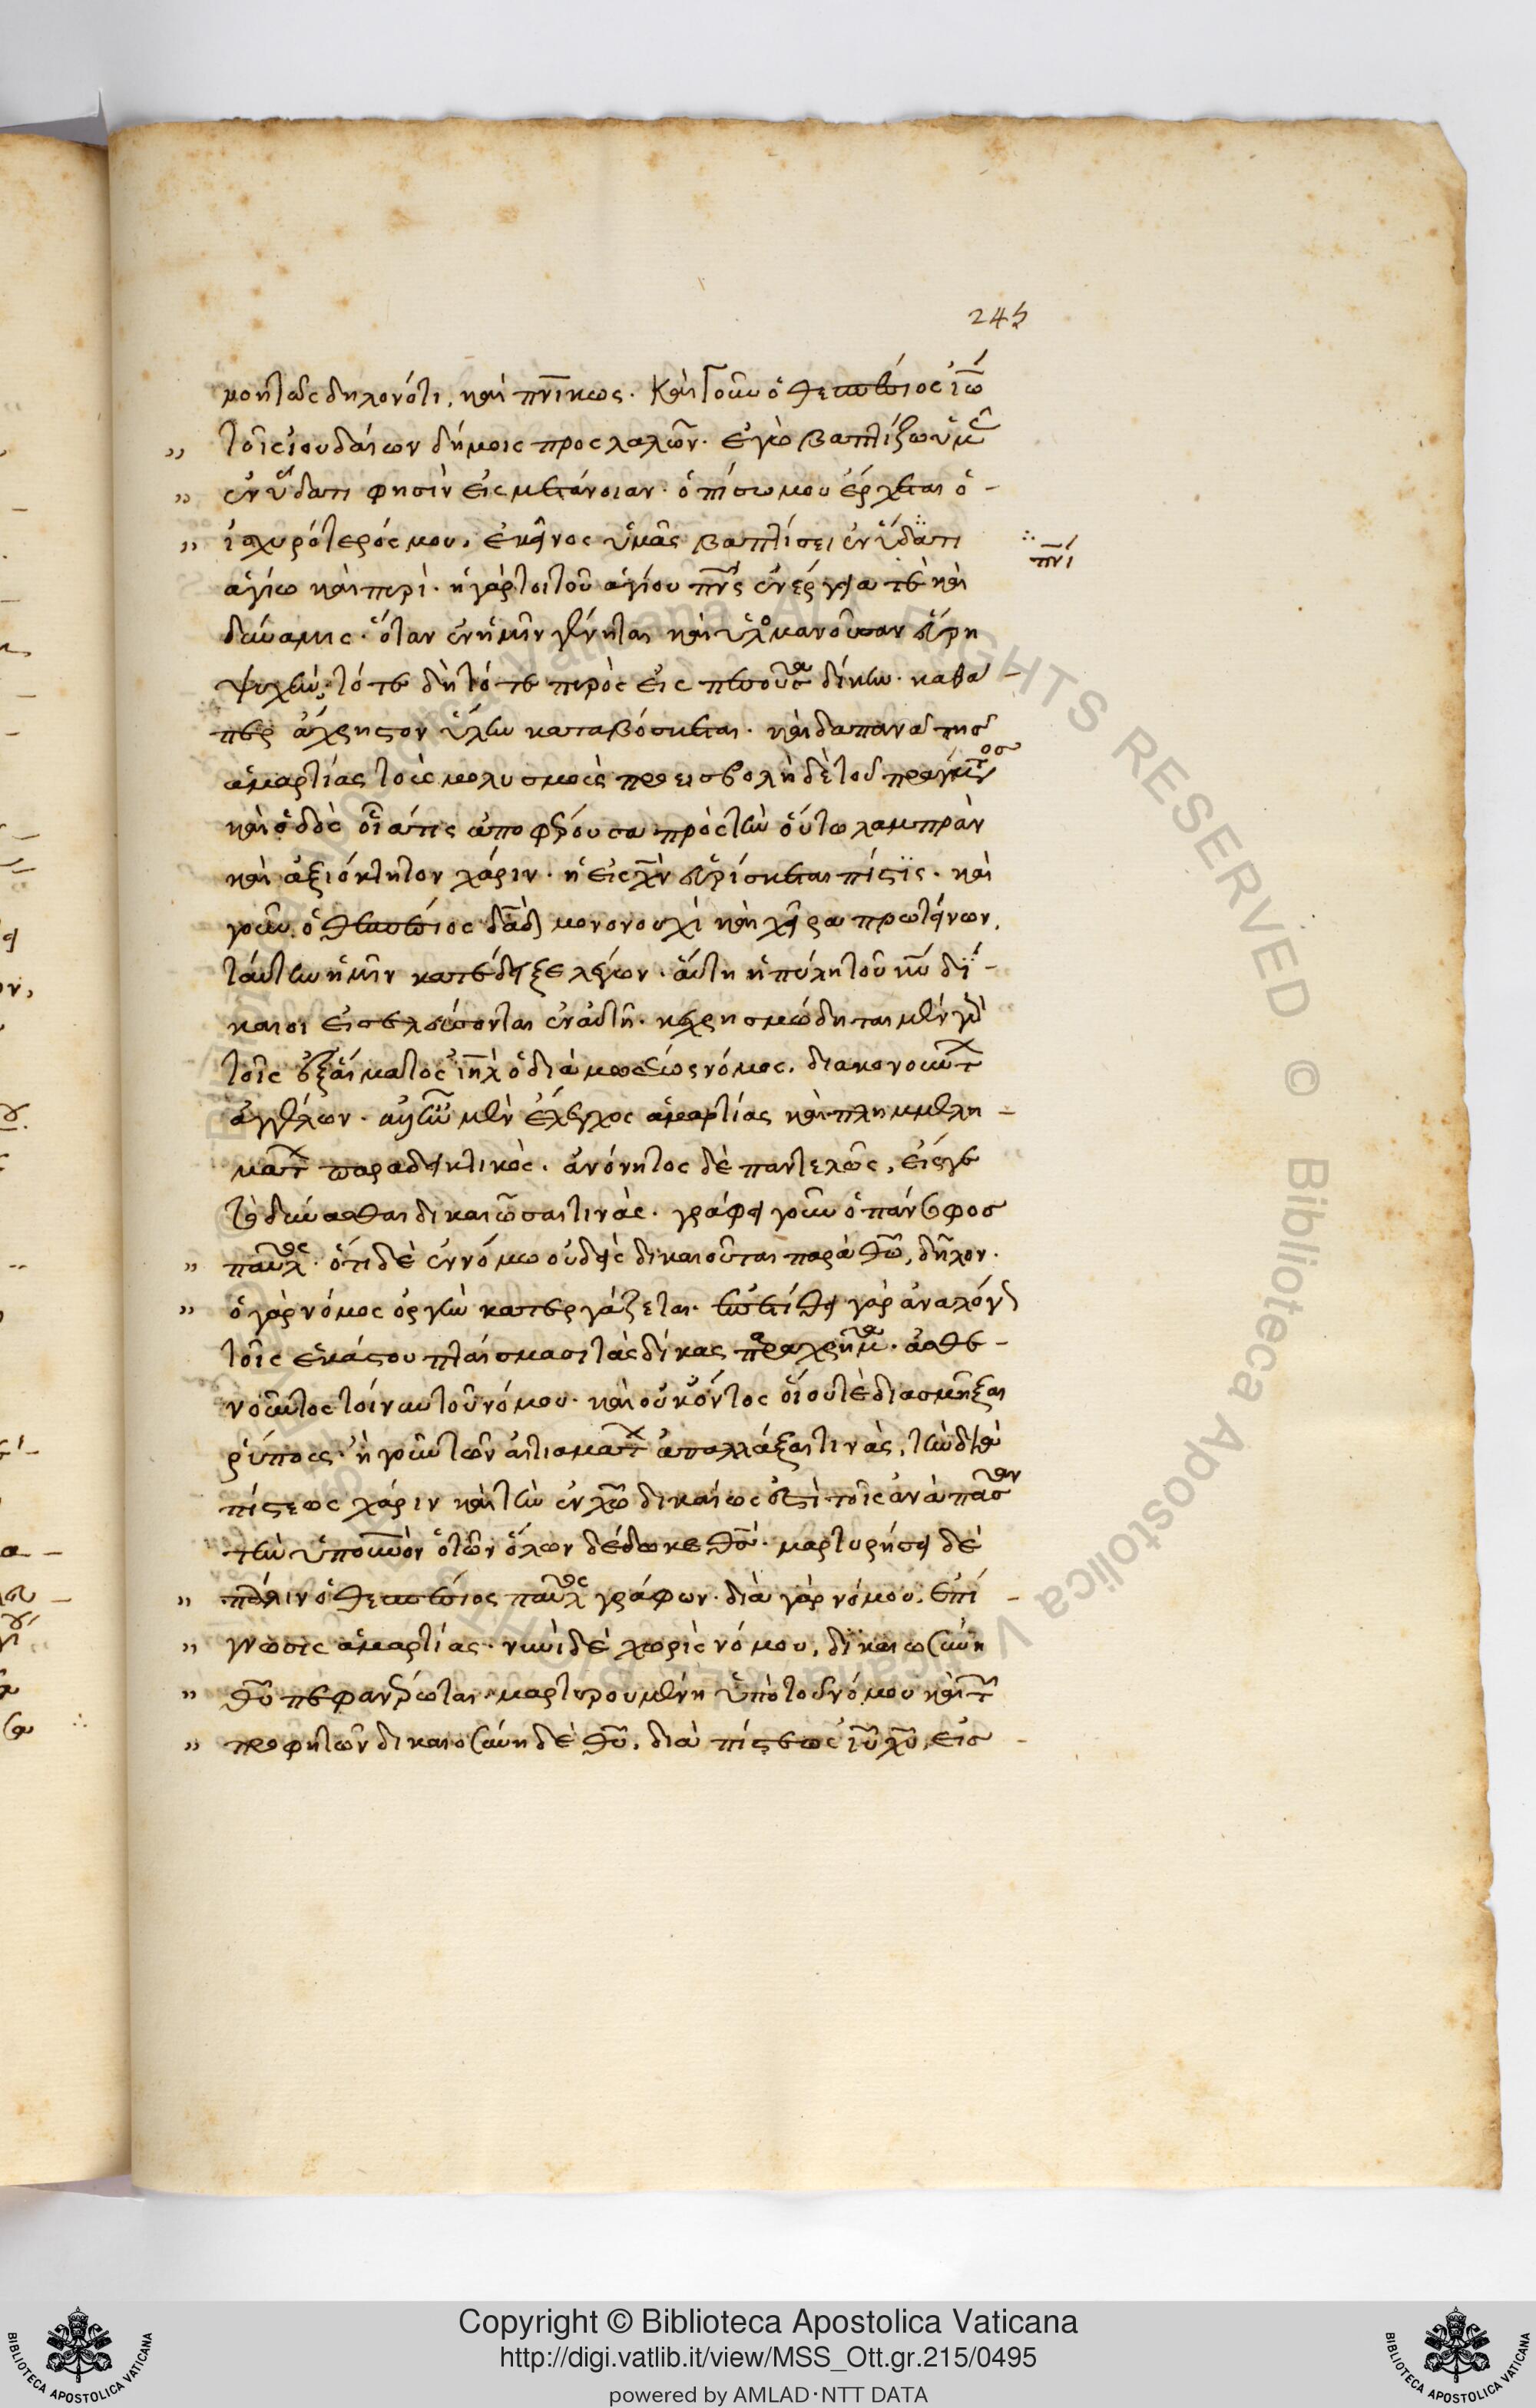 245
μονῆς τῶς δηλονότι, καὶ πν̅ικῶς. Καὶ γοῦν ὁ θεσπέσιος ἰω̅
τοῖς ἰουδαίων δήμοις προσλαλῶν. ἐγὼ βαπτίζω ὑμᾶς
ἐν ὕδατι φησὶν εἰς μετάνοιαν. ὀπίσω μου ἔρχεται ὁ
ἰσχυρότερός μου, ἐκεῖνος ὑμᾶς βαπτίσει ἐν ὕδατι
πν̅ι
ἁγίω καὶ πυρί. ἡ γάρ τοι τοῦ ἁγίου πν̅ς ἐνέργειά τε καὶ
δύναμις. ὅταν ἐν ἡμῖν γένηται καὶ ὑλομανοῦσαν εὕρη
ψυχὴν, τότε δὴ τότε πυρὸς εἰς πεσοῦσα δίκην. καθά
περ ἄχρηστον ὕλην καταβόσκεται. καὶ δαπανᾶ τῆς
ἁμαρτίας τοὺς μολυσμοὺς προεισβολὴ δὲ τοῦ πράγματος
καὶ ὁδὸς οἷά τις ἀποφέρουσα πρὸς τὴν οὕτω λαμπρὰν
καὶ ἀξιόκτητον χάριν. ἡ εἰς χν̅ εὑρίσκεται πίστις. καὶ
γοῦν ὁ θεσπέσιος δα̅δ μονονουχὶ καὶ χεῖρα προτείνων,
ταύτην ἡμῖν κατέδειξε λέγων. αὕτη ἡ πύλη τοῦ κυ̅ δί
καιοι εἰσελεύσονται ἐν αὐτῆ. κεχρησμώδηται μὲν γὰρ
τοῖς ἐξ αἵματος ἰη̅λ ὁ διὰ μωσέως νόμος, διακονούντων
ἀγγέλων. ἀλλ' ἦν μὲν ἔλεγχος ἁμαρτίας καὶ πλημμελη
μάτων παραδεικτικὸς. ἀνόνητος δὲ παντελῶς, εἴς γε
τὸ δύνασθαι δικαιῶσαι τινάς. γράφει γοῦν ὁ πάνσοφος
παῦλος. ὅτι δὲ ἐν νόμω οὐδεὶς δικαιοῦται παρὰ θω̅, δῆλον.
ὁ γὰρ νόμος ὀργὴν κατεργάζεται. ἐπετίθει γὰρ ἀναλόγως
τοῖς ἑκάστου πταίσμασι τὰς δίκας παραχρῆμα. ἀσθε
νοῦντος τοίνυν τοῦ νόμου. καὶ οὐκ ὄντος οἵου τε διασμῆξαι
ῥύπους. ἢ γοῦν τῶν αἰτιαμάτων ἀπαλλάξαι τινὰς, τὴν διὰ
πίστεως χάριν καὶ τὴν ἐν χω̅ δικαίωσιν τοῖς ἀνὰ πᾶσαν
τὴν ὑπ' οὐρανὸν ὁ τῶν ὅλων δέδωκε θς̅. μαρτυρήσει δὲ
πάλιν ὁ θεσπέσιος παῦλος γράφων. διὰ γὰρ νόμου, ἐπί
γνωσις ἁμαρτίας. νυνὶ δὲ χωρὶς νόμου, δικαιωσύνη
θυ̅ πεφανέρωται. μαρτυρουμένη ὑπὸ τοῦ νόμου καὶ τῶν
προφητῶν δικαιοσύνη δὲ θυ̅, διὰ πίστεως ιυ̅ χυ̅, εἰς
Copyright © Biblioteca Apostolica Vaticana
http://digi.vatlib.it/view/MSS_Ott.gr.215/0495
powered by AMLAD·NTT DATA